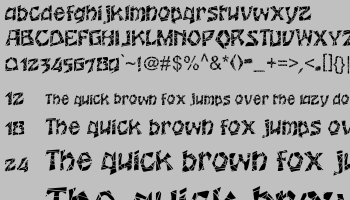 abcdefghijklmnopqrstuvwxyz
ABCDEFGHIJKLMNOPQRSTUVWXYZ
0123456789`~!@#$%^&*()=-_+=>,<.[]{}|
12 The quick brown fox jumps over the lazy do
18 The quick brown fox jumps ov
24 The quick brown fox ju
The quick brow